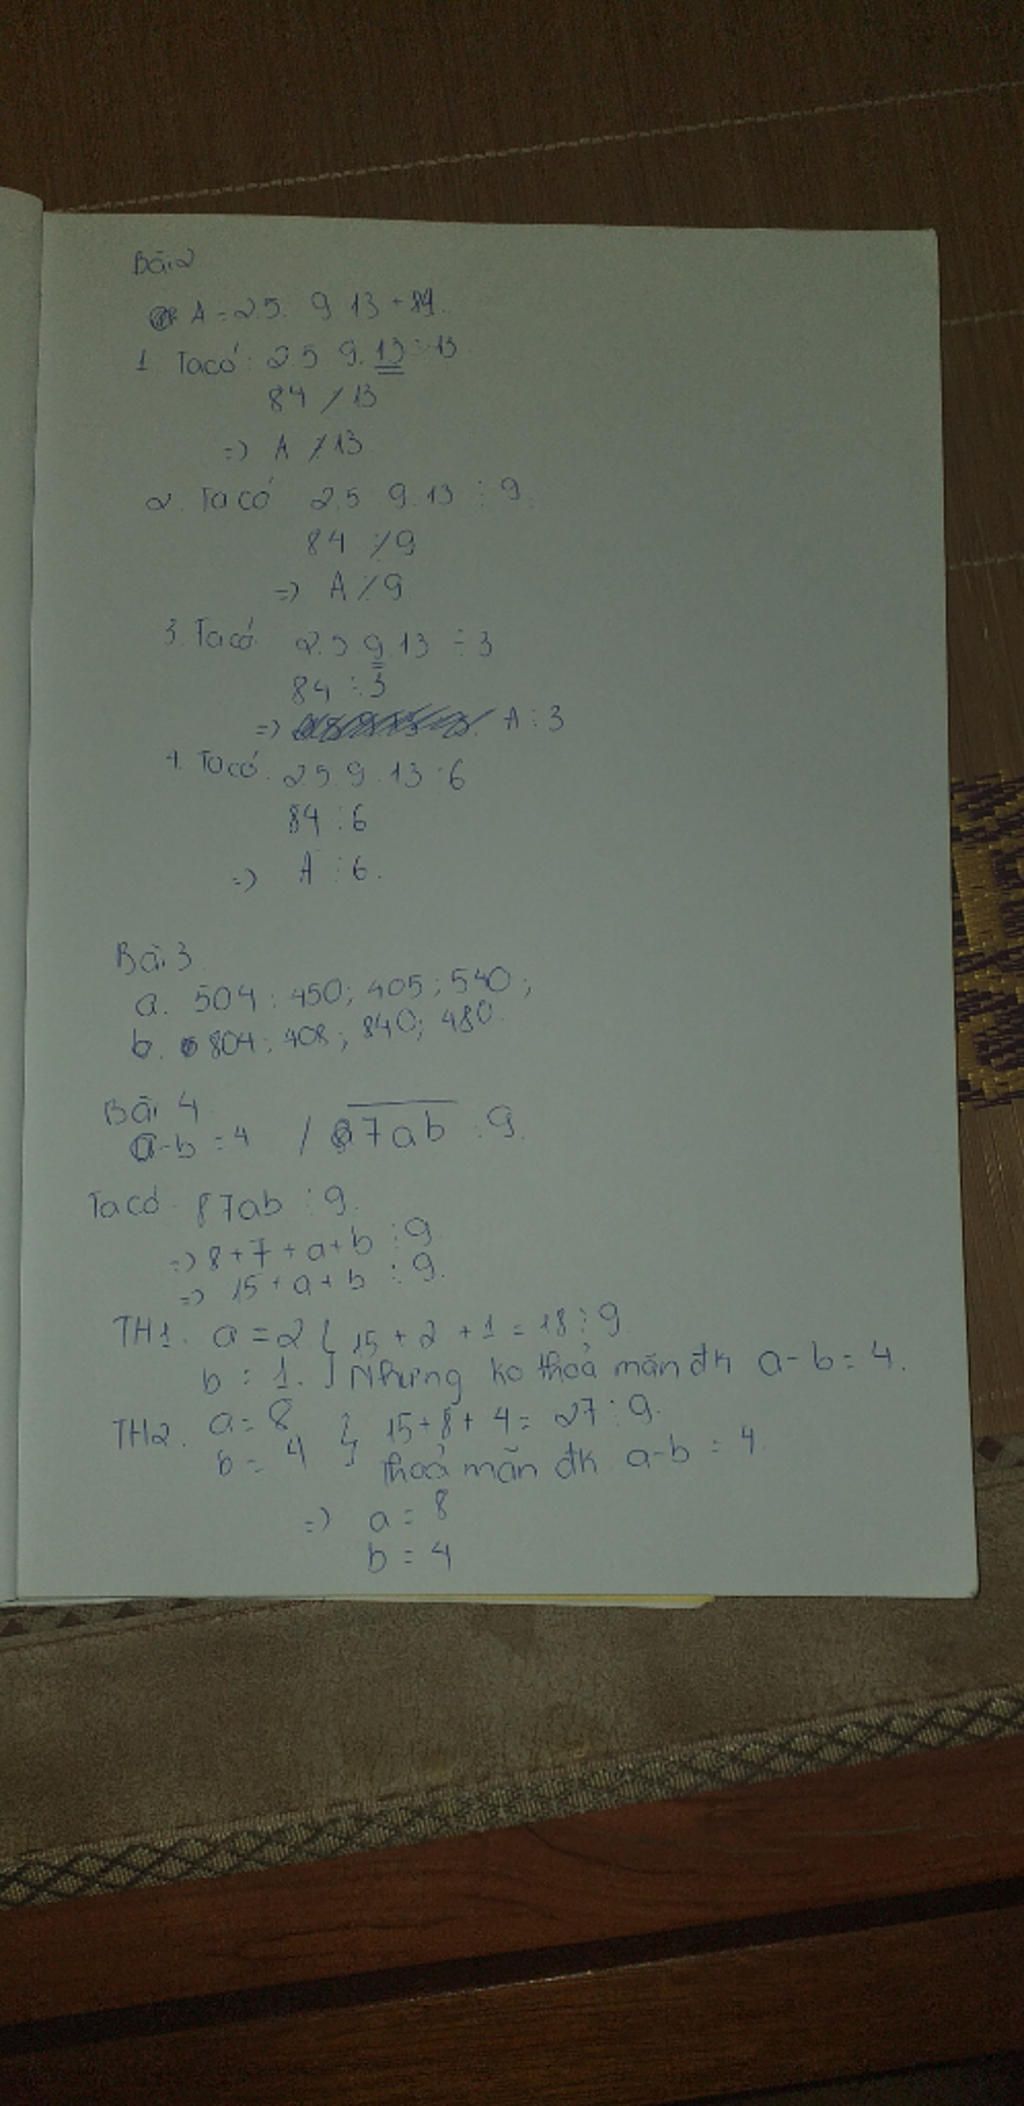 Bài 2
A = 2.5. 9 13 + 84.
1 Ta có: 2.5 9. 13 ⋮ 13
84 ⋮̸ 13
=> A ⋮̸ 13
2. Ta có 2.5 9.13 ⋮ 9.
84 ⋮̸ 9
=> A ⋮̸ 9
3. Ta có 2.5 9.13 ⋮ 3
84 ⋮ 3
=> A ⋮ 3
4. Ta có. 2.5.9.13 ⋮ 6
84 ⋮ 6
=> A ⋮ 6.
Bài 3
a. 504; 450; 405; 540;
b. 804; 408; 840; 480.
Bài 4
a-b = 4 / 87ab ⋮ 9.
Ta có 87ab ⋮ 9.
=> 8+7+a+b ⋮ 9
=> 15+a+b ⋮ 9.
TH1. a = 2 } 15 + 2 + 1 = 18 ⋮ 9
b = 1. } Nhưng ko thoả mãn đk a-b = 4.
TH2. a = 8 } 15+8+4 = 27 ⋮ 9.
b = 4 } Thoả mãn đk a-b = 4.
=> a = 8
b = 4